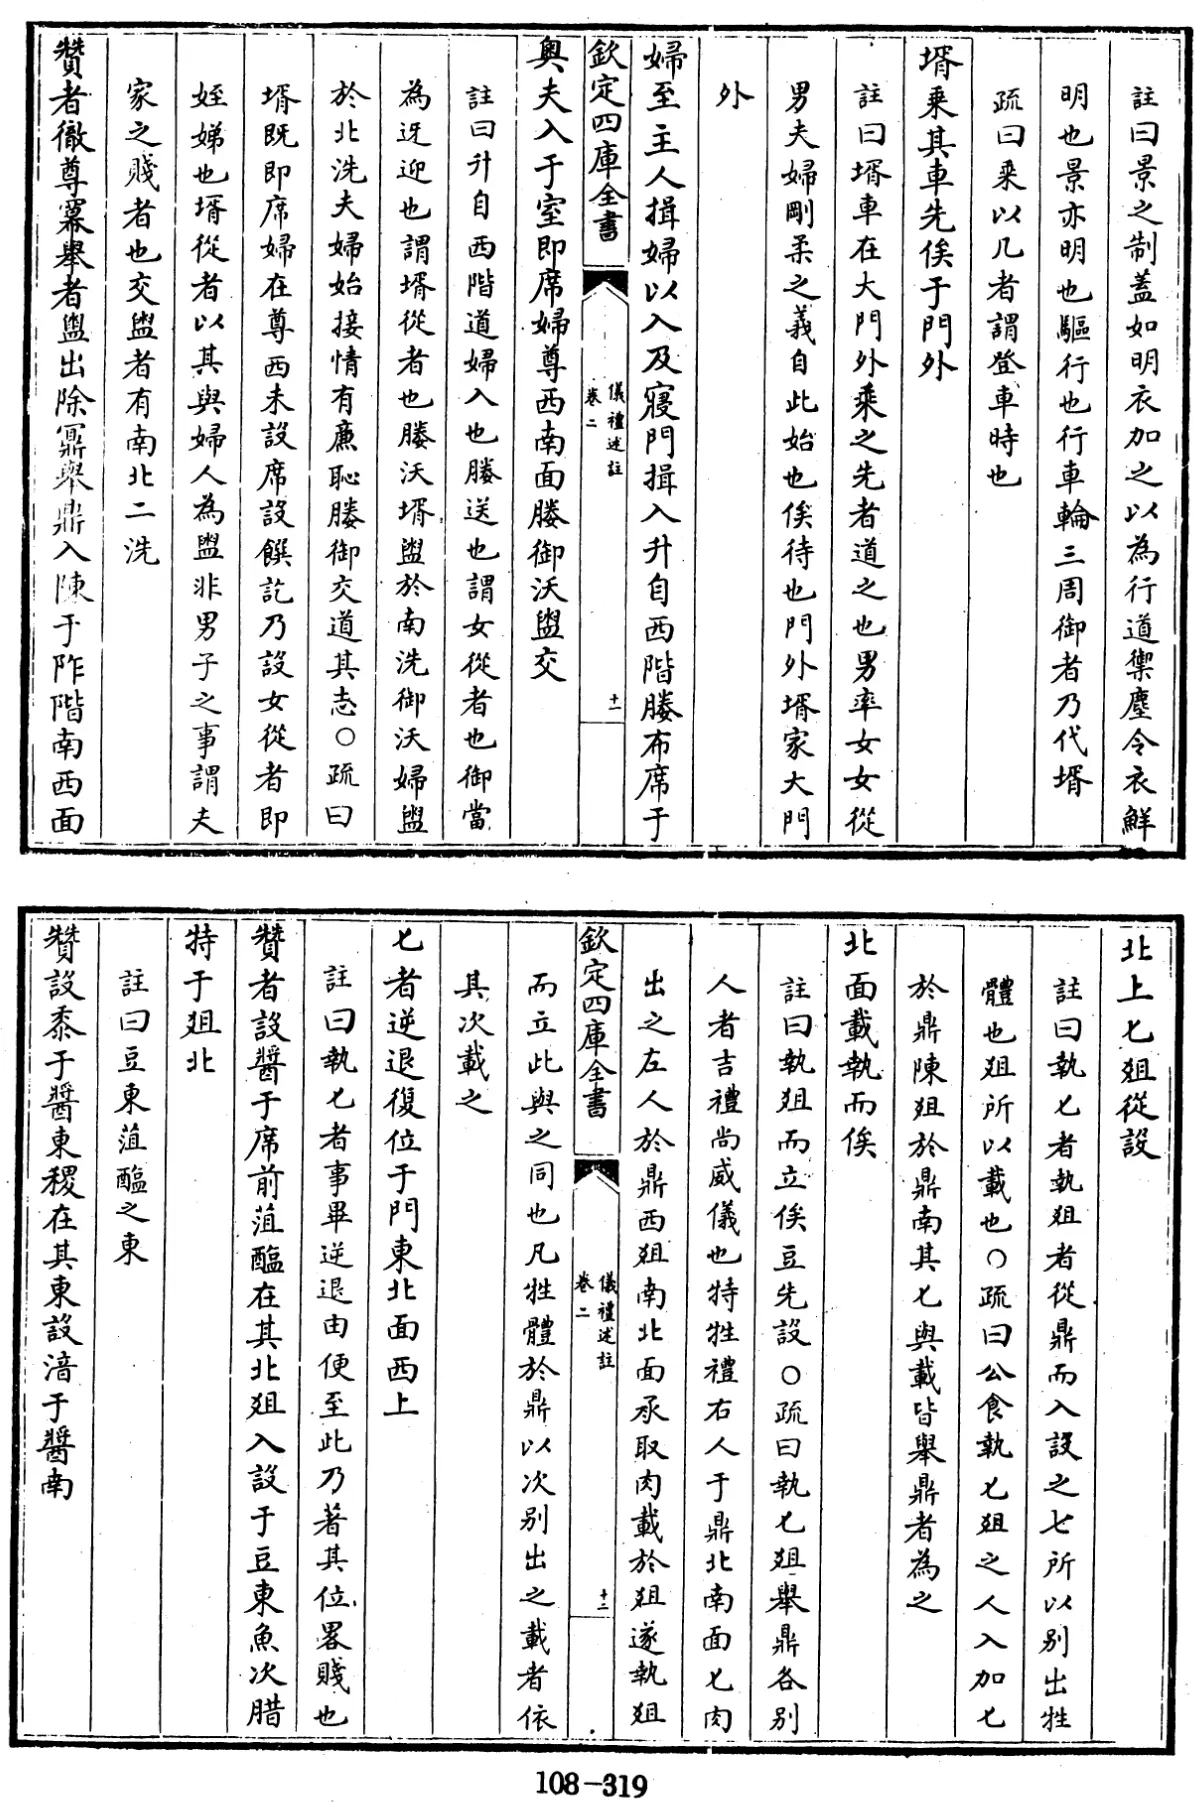 註曰景之制蓋如明衣加之以為行道禦塵令衣鮮
明也景亦明也驅行也行車輪三周御者乃代壻
疏曰乘以几者謂登車時也
壻乘其車先俟于門外
註曰壻車在大門外乘之先者道之也男率女女從
男夫婦剛柔之義自此始也俟待也門外壻家大門
外
婦至主人揖婦以入及寢門揖入升自西階媵布席于
欽定四庫全書
儀禮述註
卷二
十一
奧夫入于室即席婦尊西南面媵御沃盥交
註曰升自西階道婦入也媵送也謂女從者也御當
為訝迎也謂壻從者也媵沃壻盥於南洗御沃婦盥
於北洗夫婦始接情有廉恥媵御交道其志○疏曰
壻既即席婦在尊西未設席設饌訖乃設女從者即
姪娣也壻從者以其與婦人為盥非男子之事謂夫
家之賤者也交盥者有南北二洗
贊者徹尊冪舉者盥出除鼏舉鼎入陳于阼階南西面
北上匕俎從設
註曰執匕者執俎者從鼎而入設之匕所以別出牲
體也俎所以載也○疏曰公食執匕俎之人入加匕
於鼎陳俎於鼎南其匕與載皆舉鼎者為之
北面載執而俟
註曰執俎而立俟豆先設○疏曰執匕俎舉鼎各別
人者吉禮尚威儀也特牲禮右人于鼎北南面匕肉
出之左人於鼎西俎南北面承取肉載於俎遂執俎
欽定四庫全書
儀禮述註
卷二
十二
而立此與之同也凡牲體於鼎以次別出之載者依
其次載之
匕者逆退復位于門東北面西上
註曰執匕者事畢逆退由便至此乃著其位畧賤也
贊者設醬于席前菹醢在其北俎入設于豆東魚次腊
特于俎北
註曰豆東菹醢之東
贊設黍于醬東稷在其東設湆于醬南
108-319